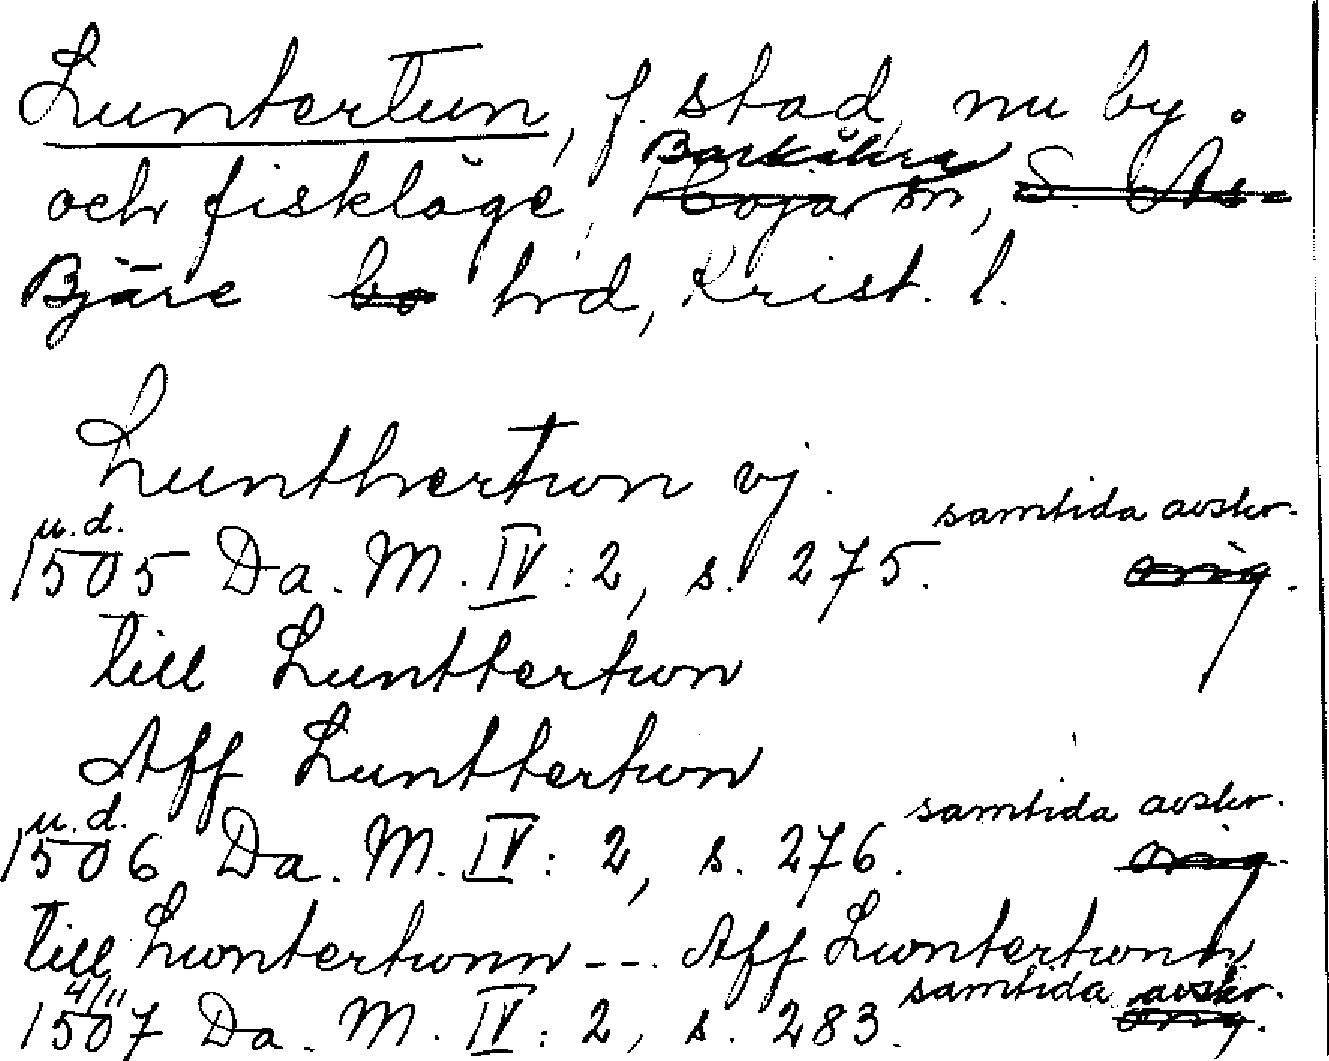 Luntertun, f. stad, nu by.
Barkåkra
och fiskläge, Höja sn, S. Ås-
Bjäre bo hrd, Krist. l.
Lunthertwn vj.
u.d. samtida avskr.
1505 Da. M. IV: 2, s. 275. orig.
till Lunttertwn
Aff Lunttertwn
u.d. samtida avskr.
1506 Da. M. IV: 2, s. 276. orig.
till Lwntertwnn --. Aff Lwntertwnn
4/11 samtida avskr.
1507 Da. M. IV: 2, s. 283. orig.